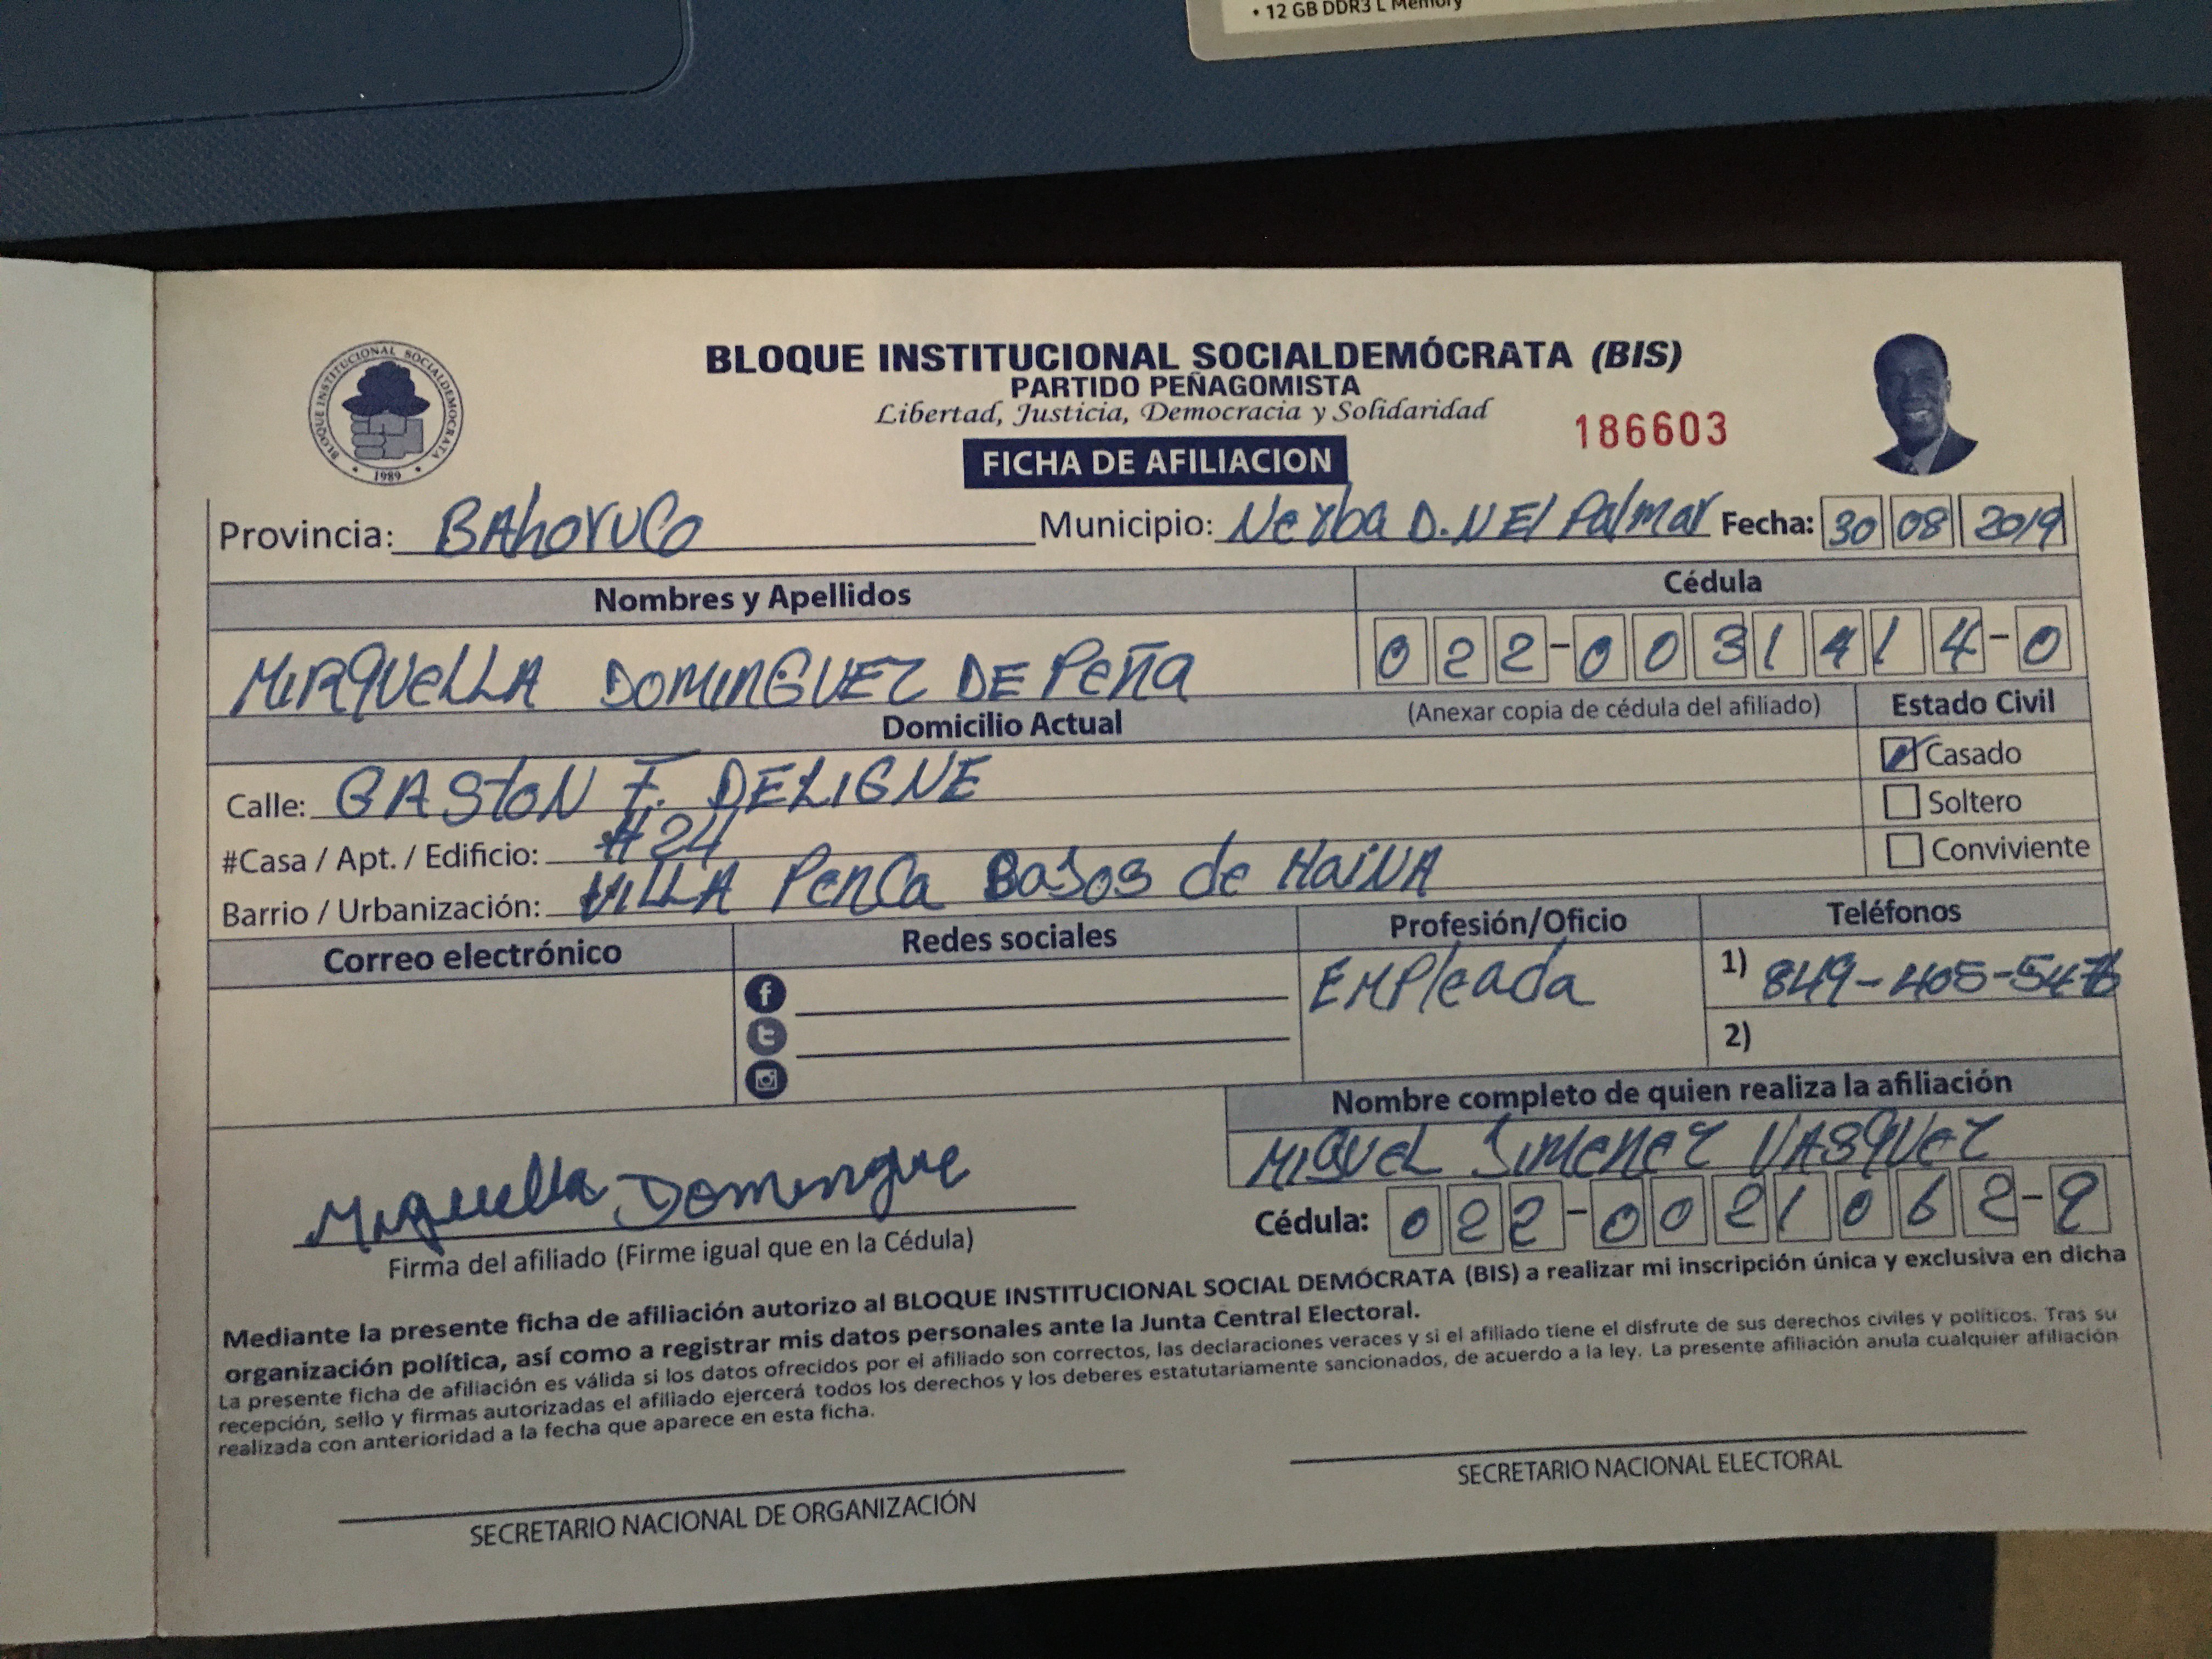 • 12 GB DDR3 L Memory
BLOQUE INSTITUCIONAL SOCIALDEMOCRATA
1989
BLOQUE INSTITUCIONAL SOCIALDEMÓCRATA (BIS)
PARTIDO PEÑAGOMISTA
Libertad, Justicia, Democracia y Solidaridad
186603
FICHA DE AFILIACION
Provincia: BAhoruco Municipio: Neyba D.N El Palmar Fecha: 30 08 2019
Nombres y Apellidos Cédula
MIRQUELLA DOMINGUEZ DE PEÑA 022-0031414-0
Domicilio Actual (Anexar copia de cédula del afiliado) Estado Civil
Calle: GASTON F. DELIGNE Casado
#Casa / Apt. / Edificio: #24 Soltero
Barrio / Urbanización: VILLA PenCa BaJos de HaiNA Conviviente
Correo electrónico Redes sociales Profesión/Oficio Teléfonos
EMPleada 1) 849-405-
2)
Nombre completo de quien realiza la afiliación
MIGUEL JIMENEZ VASQUEZ
Cédula: 022-0021062-9
Miquella Domingue
Firma del afiliado (Firme igual que en la Cédula)
Mediante la presente ficha de afiliación autorizo al BLOQUE INSTITUCIONAL SOCIAL DEMÓCRATA (BIS) a realizar mi inscripción única y exclusiva en dicha
organización política, así como a registrar mis datos personales ante la Junta Central Electoral.
La presente ficha de afiliación es válida si los datos ofrecidos por el afiliado son correctos, las declaraciones veraces y si el afiliado tiene el disfrute de sus derechos civiles y políticos. Tras su
recepción, sello y firmas autorizadas el afiliado ejercerá todos los derechos y los deberes estatutariamente sancionados, de acuerdo a la ley. La presente afiliación anula cualquier afiliación
realizada con anterioridad a la fecha que aparece en esta ficha.
SECRETARIO NACIONAL DE ORGANIZACIÓN SECRETARIO NACIONAL ELECTORAL